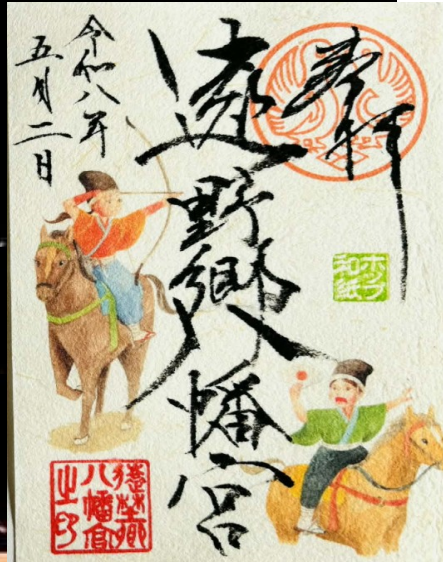 奉拝
遠野郷八幡宮
令和八年
五月二日
ホップ
和紙
八幡宮
之印